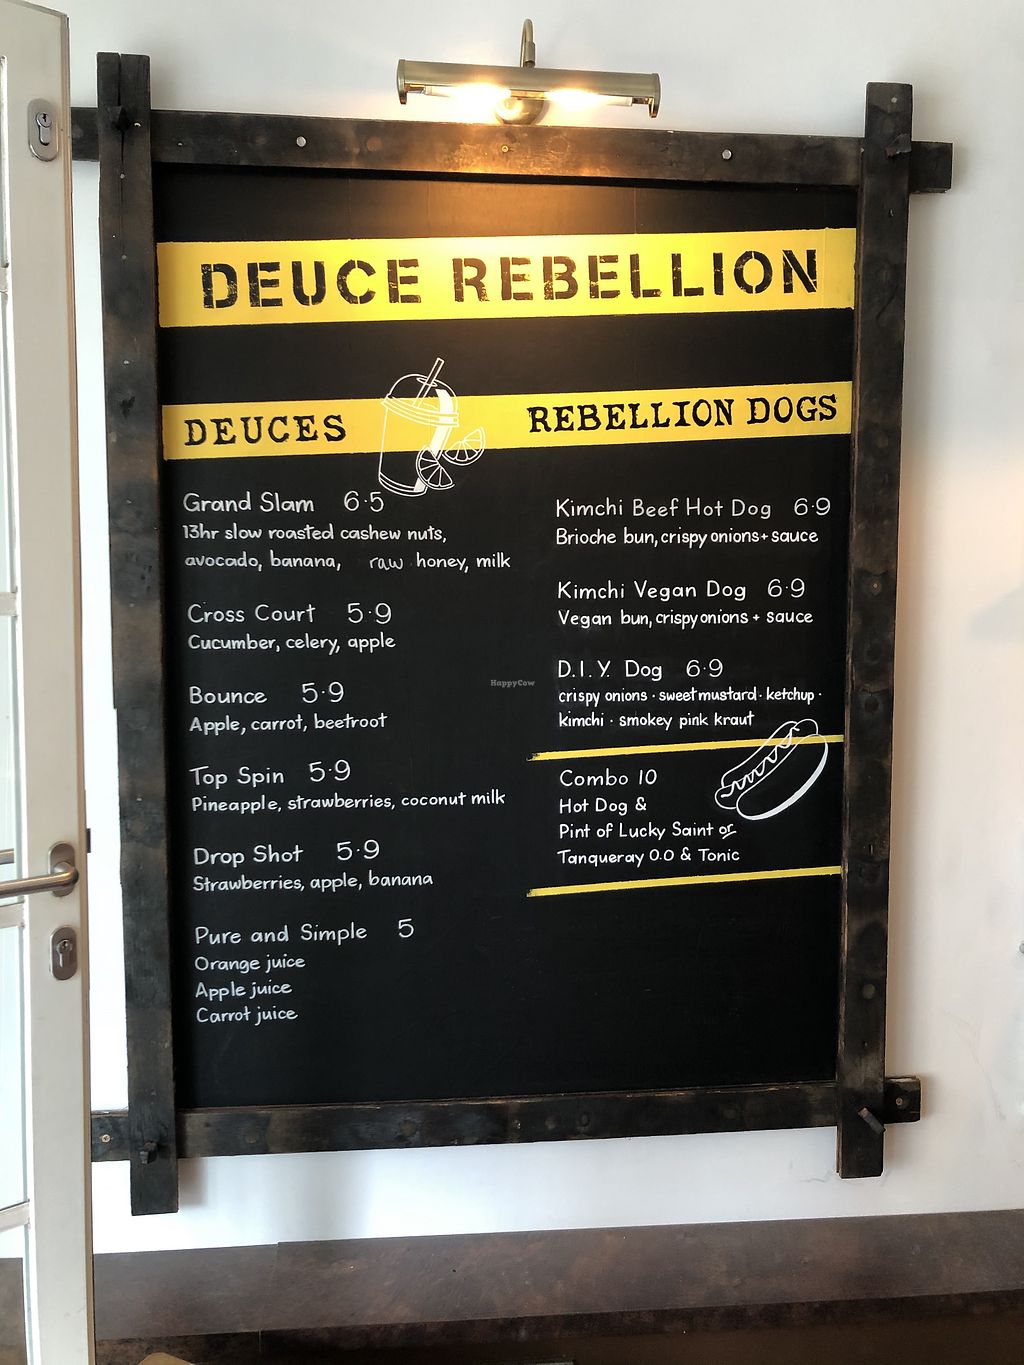 DEUCE REBELLION
DEUCES
Grand Slam 6.5
13hr slow roasted cashew nuts,
avocado, banana, raw honey, milk
Cross Court 5.9
Cucumber, celery, apple
Bounce 5.9
Apple, carrot, beetroot
Top Spin 5.9
Pineapple, strawberries, coconut milk
Drop Shot 5.9
Strawberries, apple, banana
Pure and Simple 5
Orange juice
Apple juice
Carrot juice
REBELLION DOGS
Kimchi Beef Hot Dog 6.9
Brioche bun, crispy onions + sauce
Kimchi Vegan Dog 6.9
Vegan bun, crispy onions + sauce
D.I.Y. Dog 6.9
crispy onions · sweet mustard · ketchup ·
kimchi · smokey pink kraut
Combo 10
Hot Dog &
Pint of Lucky Saint or
Tanqueray 0.0 & Tonic
HappyCow